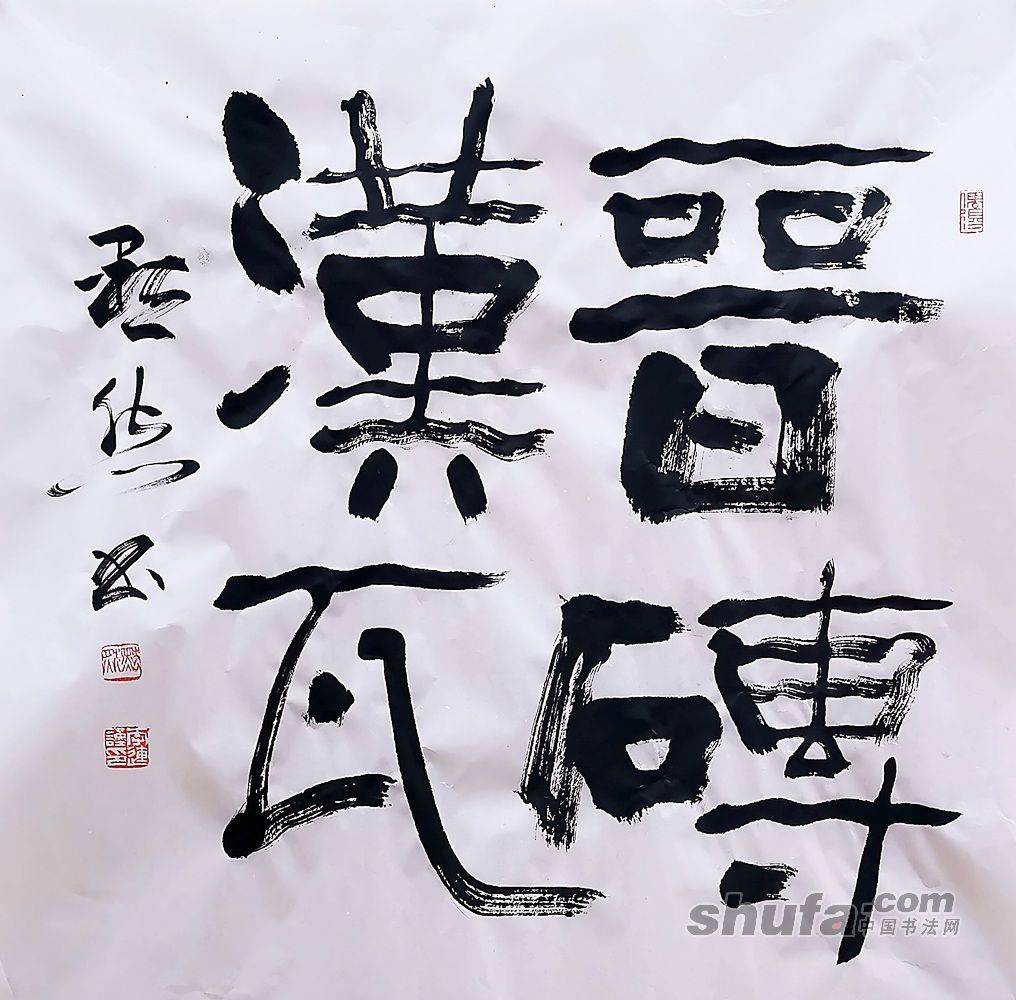 晉磚
漢瓦
然书
shufa.com
中国书法网